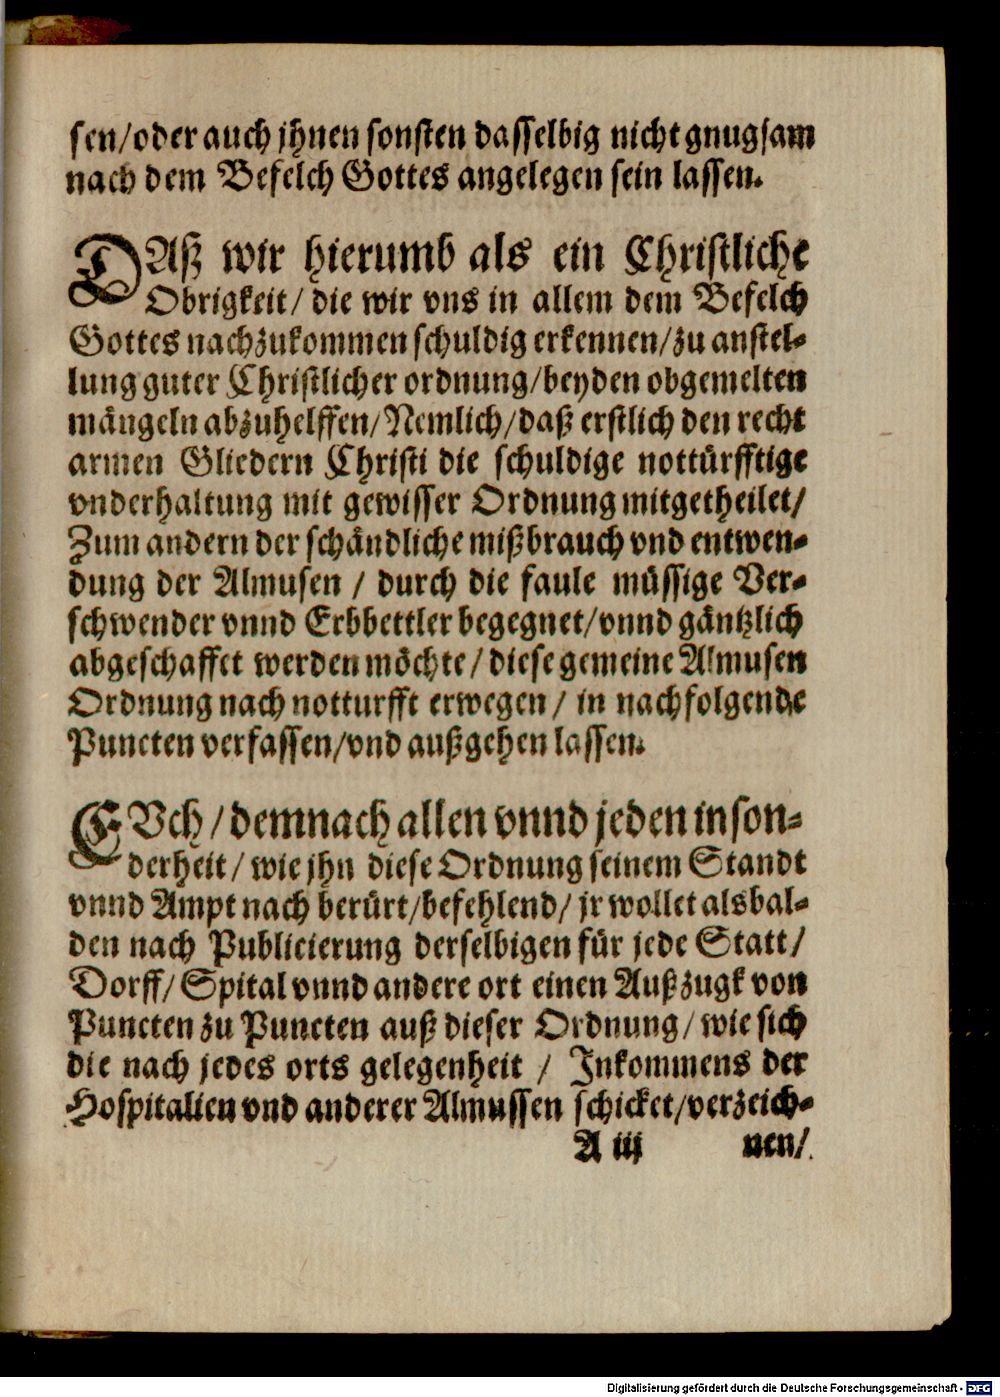 sen/oder auch jhnen sonsten dasselbig nicht gnugsam
nach dem Befelch Gottes angelegen sein lassen.
DAß wir hierumb als ein Christliche
Obrigkeit/ die wir vns in allem dem Befelch
Gottes nachzukommen schuldig erkennen/zu anstel-
lung guter Christlicher ordnung/beyden obgemelten
mängeln abzuhelffen/Nemlich/daß erstlich den recht
armen Gliedern Christi die schuldige nottürfftige
vnderhaltung mit gewisser Ordnung mitgetheilet/
Zum andern der schändliche mißbrauch vnd entwen-
dung der Almusen / durch die faule müssige Ver-
schwender vnnd Erbbettler begegnet/vnnd gäntzlich
abgeschaffet werden möchte/ diese gemeine Almusen
Ordnung nach notturfft erwegen/ in nachfolgende
Puncten verfassen/vnd außgehen lassen.
EVch/demnach allen vnnd jeden inson-
derheit/ wie jhn diese Ordnung seinem Standt
vnnd Ampt nach berürt/befehlend/ jr wollet alsbal-
den nach Publicierung derselbigen für jede Statt/
Dorff/ Spital vnnd andere ort einen Außzugk von
Puncten zu Puncten auß dieser Ordnung/ wie sich
die nach jedes orts gelegenheit / Inkommens der
Hospitalien vnd anderer Almussen schicket/verzeich-
A iij nen/
Digitalisierung gefördert durch die Deutsche Forschungsgemeinschaft - DFG